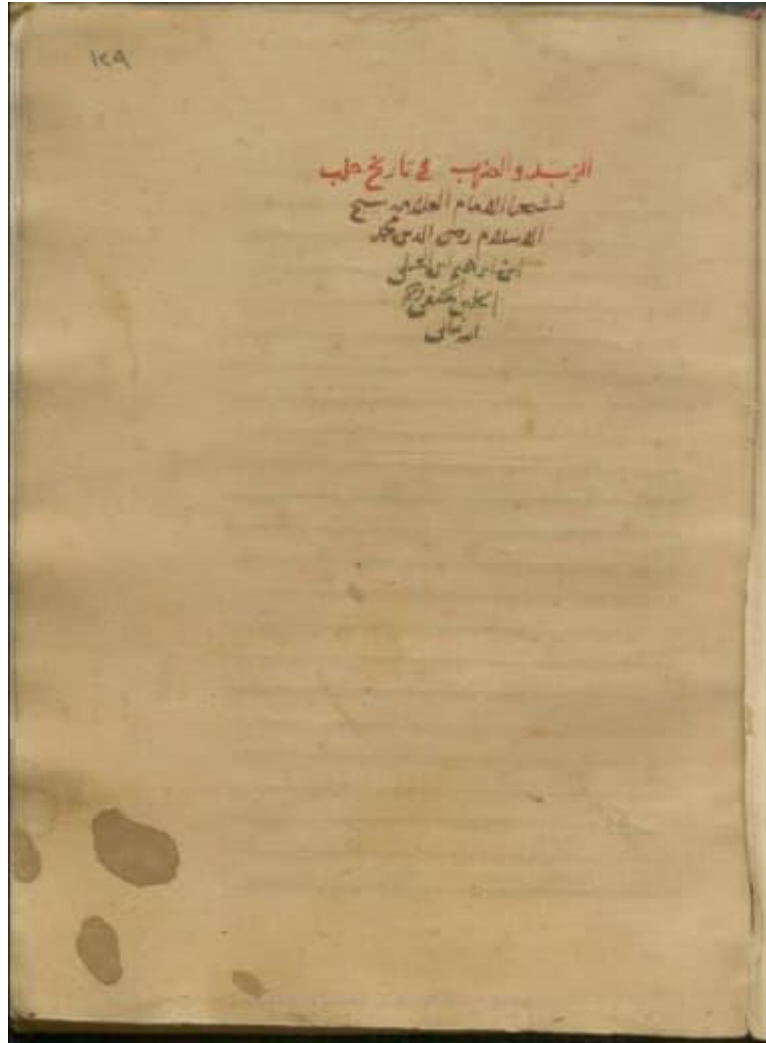 ١٢٩
الزبد والضرب في تاريخ حلب
للشيخ الامام العلامه شيخ
الاسلام رضي الدين محمد
ابن ابراهيم ابن
الحلبي الحنفي رحمه
الله تعالى